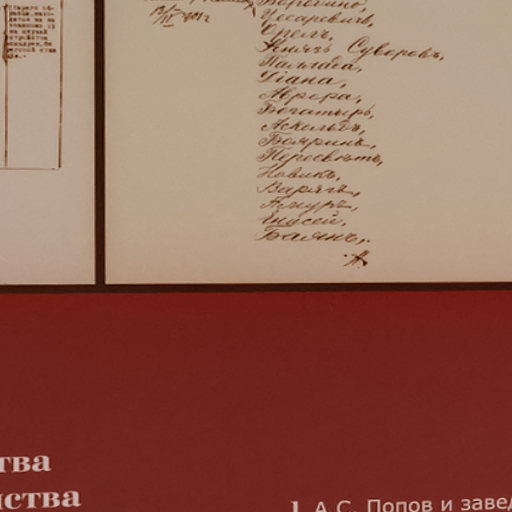 Бородино,
Цесаревичъ,
Орелъ,
Князь Суворовъ,
Паллада,
Діана,
Аврора,
Богатырь,
Аскольдъ,
Бояринъ,
Пересвѣтъ,
Новикъ,
Варягъ,
Амуръ,
Енисей,
Баянъ,
тва
ства
1 А.С. Попов и завед